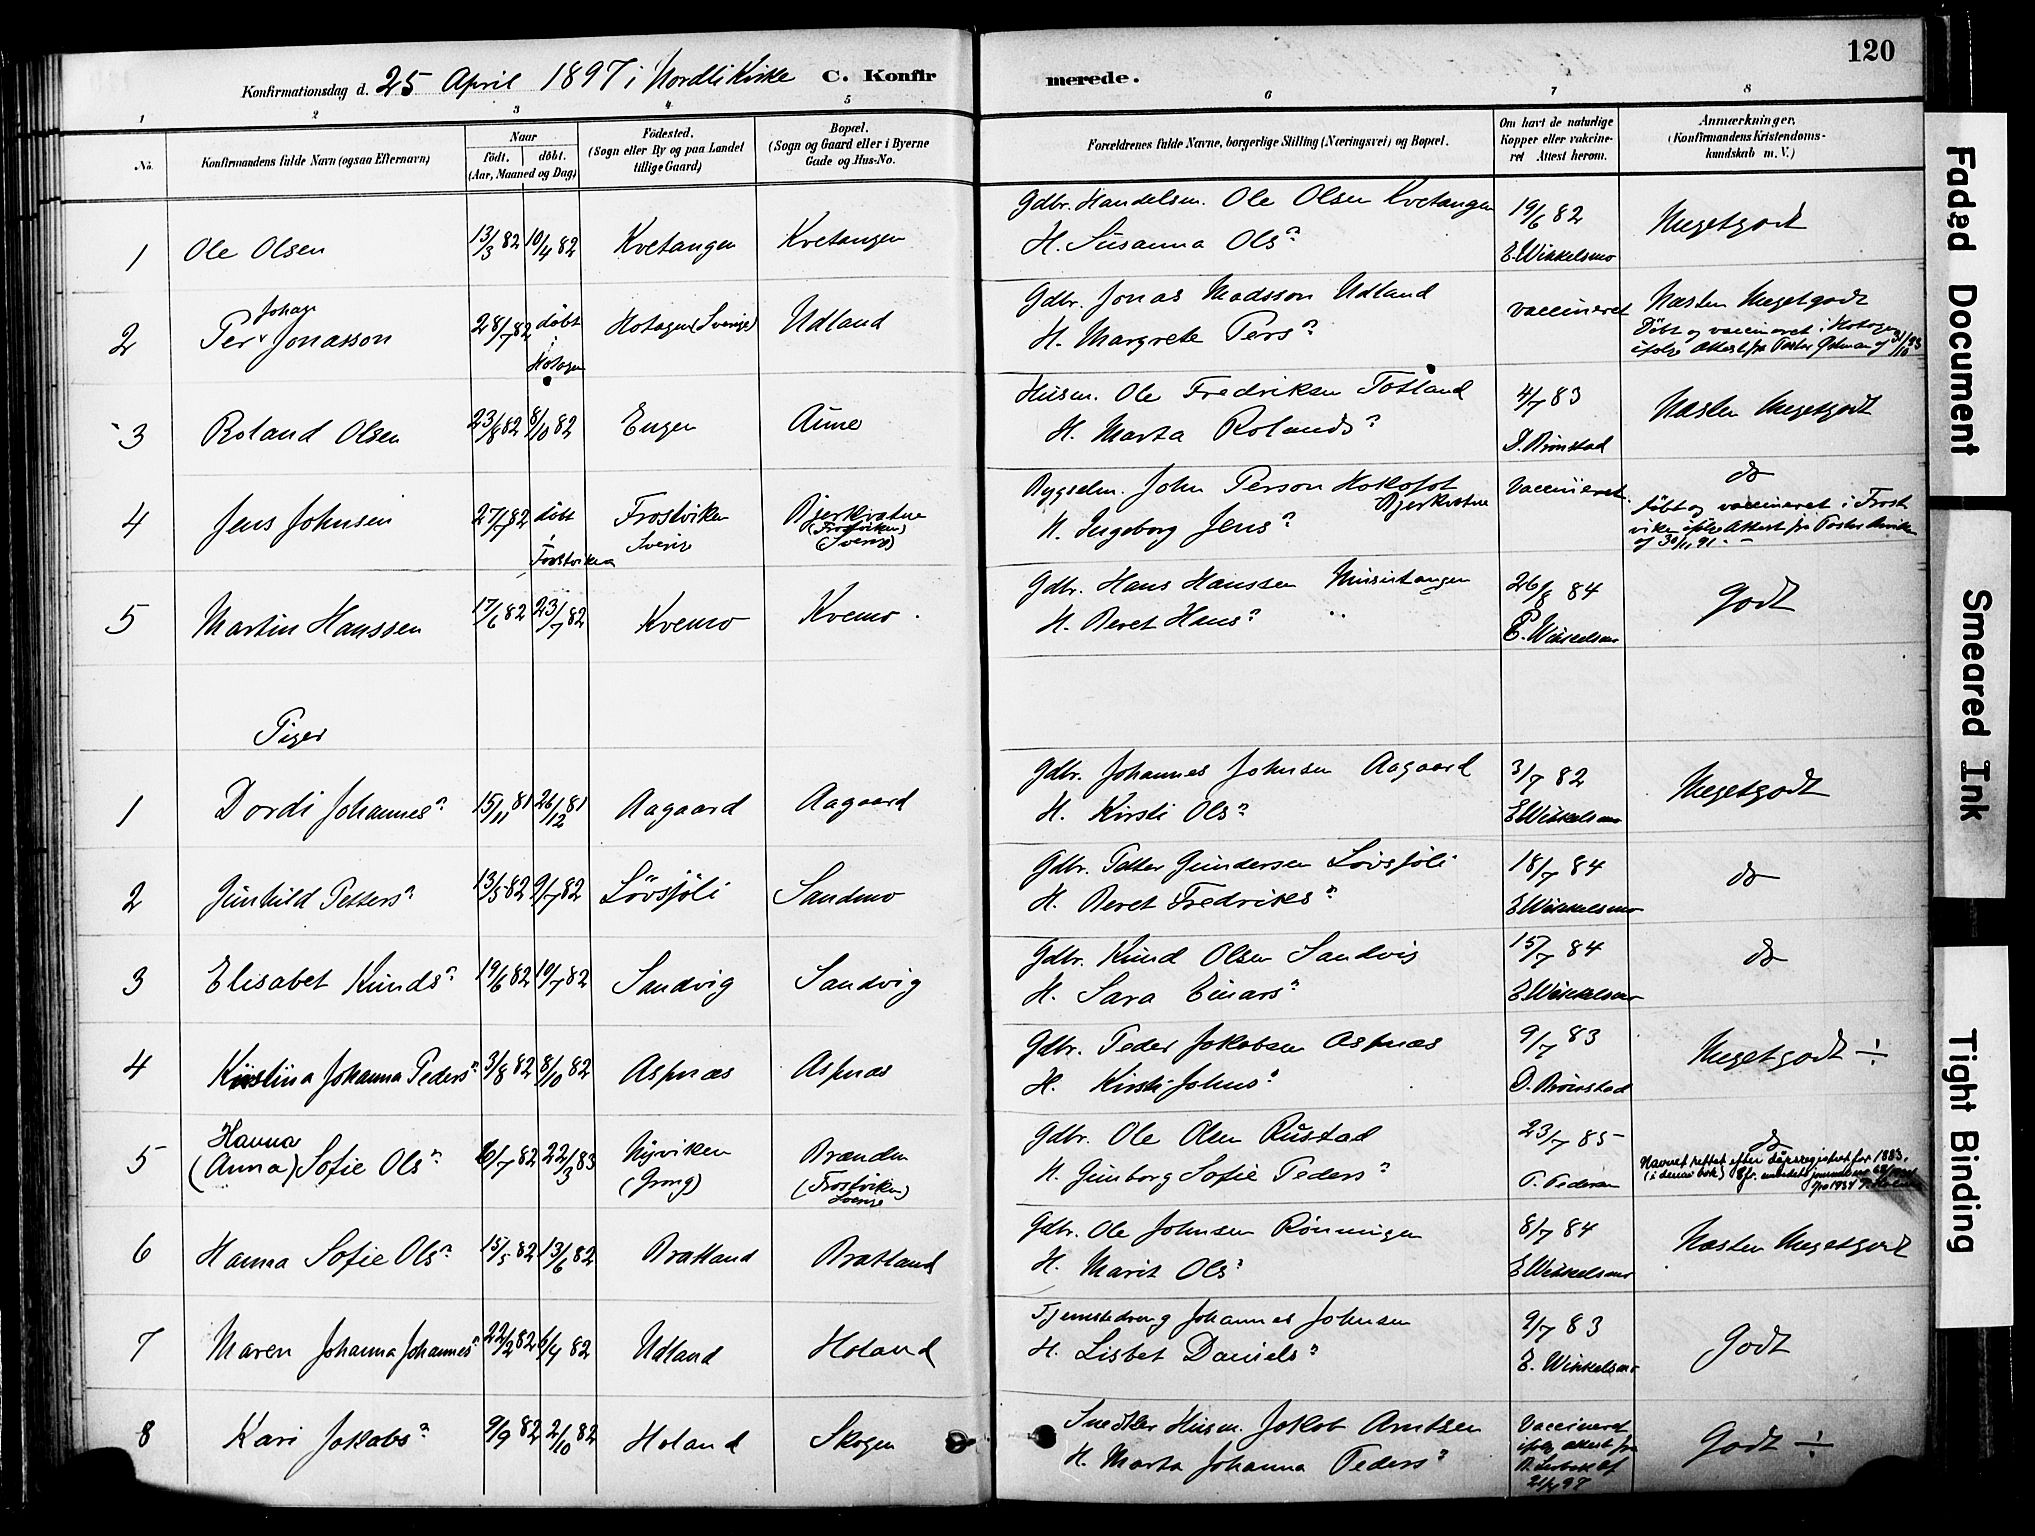 120
Konfirmationsdag d. 25 April 1897 i Nordli Kirke C. Konfirmerede.
1 2 3 4 5 6 7 8
No. Konfirmandens fulde Navn (ogsaa Efternavn) Naar födt. döbt. (Aar, Maaned og Dag) Födested. (Sogn eller By og paa Landet tillige Gaard) Bopæl. (Sogn og Gaard eller i Byerne Gade og Hus-No. Forældrenes fulde Navne, borgerlige Stilling (Næringsvei) og Bopæl. Om havt de naturlige Kopper eller vakcineret Attest herom. Anmærkninger. (Konfirmandens Kristendomskundskab m. V.)
1 Ole Olsen 13/3 82 10/4 82 Kvetangen Kvetangen Gdbr. Handelsm. Ole Olsen Kvetangen 19/6 82 Megetgodt
H. Susanna Olsn E. Winkelsmo
2 Per Johan Jonasson 28/7 82 döbt i Hotagen Hotagen (Sverige) Udland Gdbr. Jonas Madsson Udland vaccineret Næsten Megetgodt
H. Margrete Persn Döbt og vaccineret i Hotagen
ifölge Attest fra Pastor
3 Roland Olsen 23/8 82 8/10 82 Engen Aune Husm. Ole Fredriksen Totland 4/7 83 Næsten Megetgodt
H. Marta Rolandsn
4 Jens Johnsen 27/7 82 döbt i Frostviken Frostviken Sverig Bjerkvatne (Frostviken) (Sverig) Bygselm. John Person Bjerkvatne Vaccineret do
H. Ingeborg Jensn döbt og vaccineret i Frostviken ifölge Attest fra Pastor
af 30/11 91
5 Martin Hanssen 17/6 82 23/7 82 Kvemo Kvemo Gdbr. Hans Hanssen Murustangen 26/8 84 Godt
H. Beret Hansn E. Winkelsmo
Piger
1 Dordi Johannesn 15/11 81 26/12 81 Aagaard Aagaard Gdbr. Johannes Johnsen Aagaard 3/7 82 Megetgodt
H. Kirsti Olsn E Winkelsmo
2 Gunhild Pettersn 13/5 82 9/7 82 Lövsjöli Sandmo Gdbr. Petter Gundersen Lövsjöli 18/7 84 do
H. Beret Fredriksn E Winkelsmo
3 Elisabet Knudsn 19/6 82 19/7 82 Sandvig Sandvig Gdbr. Knud Olsen Sandvig 15/7 84 do
H. Sara Einarsn E Winkelsmo
4 Kristina Johanna Pedersn 3/8 82 8/10 82 Aspnæs Aspnæs Gdbr. Peder Jakobsen Aspnæs 9/7 83 Megetgodt ÷
H. Kirsti Johnsn
5 Hanna (Anna) Sofie Olsn 6/7 82 22/3 83 Nyviken (Grong) Brænden (Frostviken) Sverige Gdbr. Ole Olsen Rustad 23/7 85 do
H. Gunborg Sofie Pedersn P. Pedersen Navnet rettet efter dåpsregistret for 1883.
(i denne bok)
6 Hanna Sofie Olsn 15/5 82 13/6 82 Bratland Bratland Gdbr. Ole Johnsen Rönningen 8/7 84 Næsten Megetgodt
H. Marit Olsn E Winkelsmo
7 Maren Johanna Johannesn 22/2 82 6/4 82 Udland Holand Tjenstedreng Johannes Johnsen 9/7 83 Godt
H. Lisbet Danielsn E. Winkelsmo
8 Kari Jakobsn 9/9 82 2/10 82 Holand Skogen Snedker Husm. Jakob Arntsen Vaccineret ifölge attest fra Godt ÷
H. Marta Johanna Pedersn
Faded Document
Smeared Ink
Tight Binding